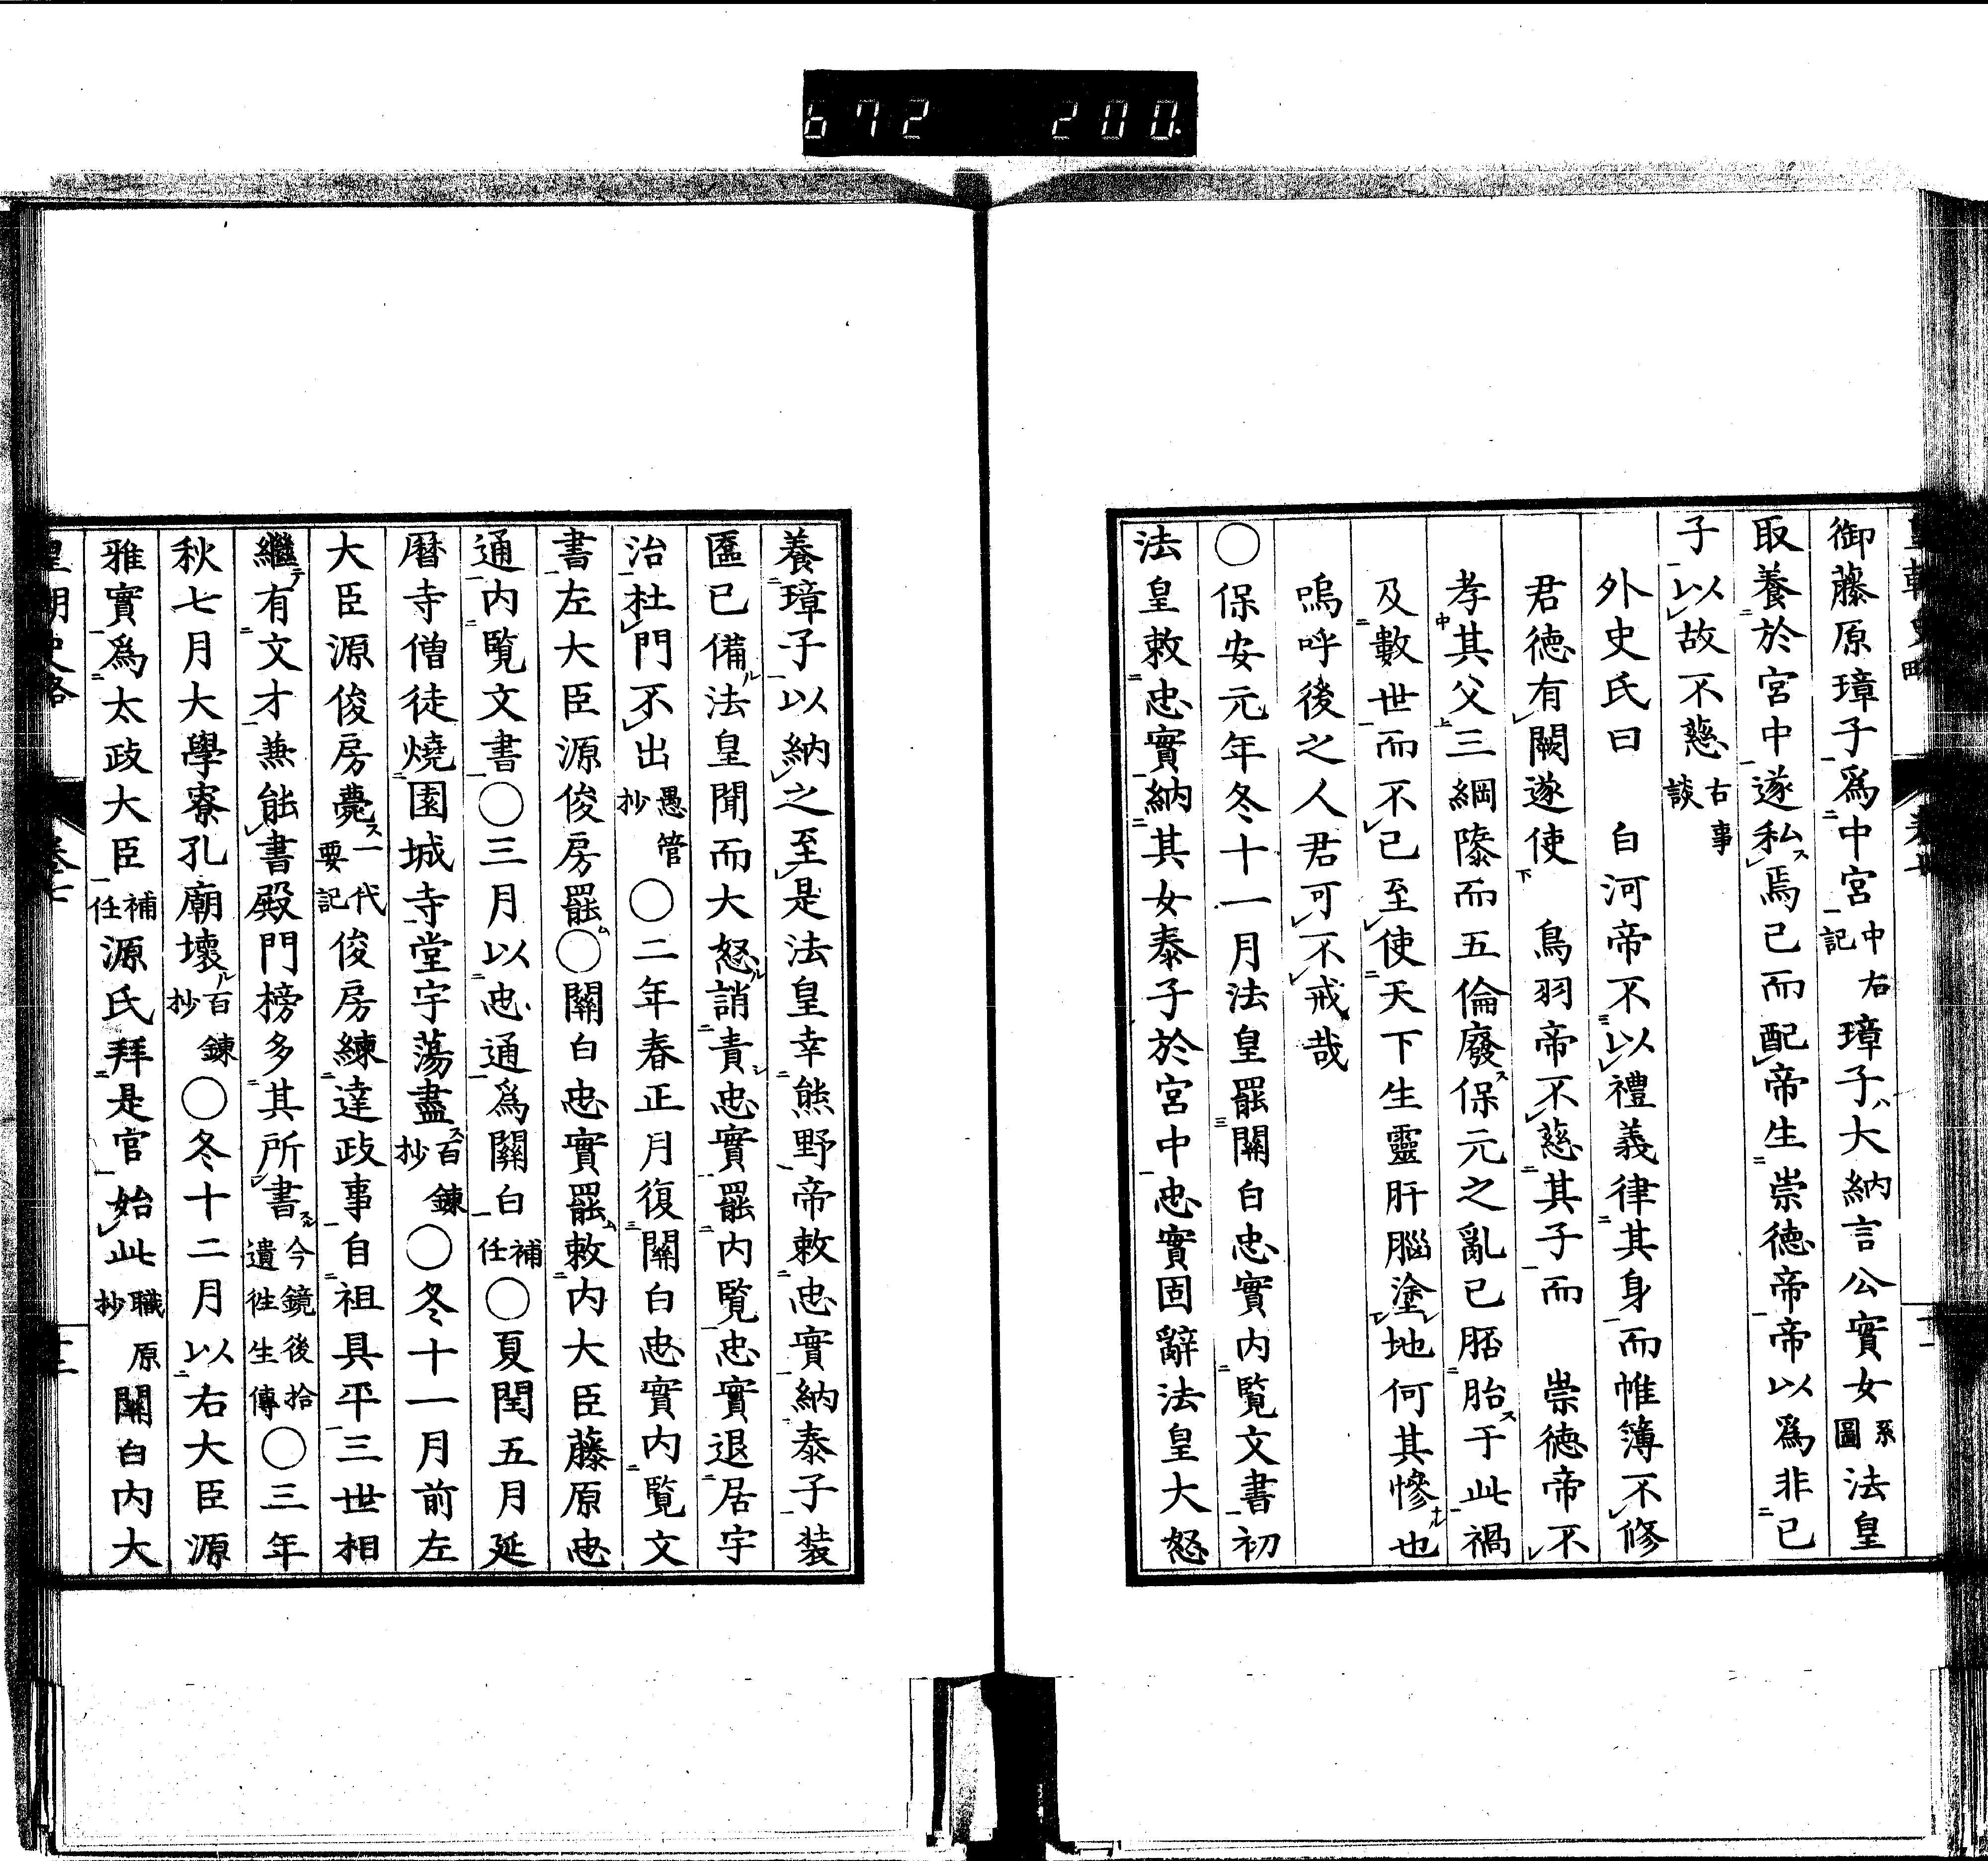 672 200.
御藤原璋子爲中宮中右記璋子大納言公實女系圖法皇
取養於宮中遂私焉已而配帝生崇德帝帝以爲非己
子以故不慈古事談
外史氏曰 白河帝不以禮義律其身而帷簿不修
君德有闕遂使 鳥羽帝不慈其子而 崇德帝不
孝其父三綱隳而五倫廢保元之亂已胚胎于此禍
及數世而不已至使天下生靈肝腦塗地何其慘也
嗚呼後之人君可不戒哉
〇保安元年冬十一月法皇罷關白忠實內覽文書初
法皇敕忠實納其女泰子於宮中忠實固辭法皇大怒
養璋子以納之至是法皇幸熊野帝敕忠實納泰子裝
匳已備法皇聞而大怒誚責忠實罷內覽忠實退居宇
治杜門不出愚管抄〇二年春正月復關白忠實內覽文
書左大臣源俊房罷〇關白忠實罷敕內大臣藤原忠
通內覽文書〇三月以忠通爲關白補任〇夏閏五月延
曆寺僧徒燒園城寺堂宇蕩盡百鍊抄〇冬十一月前左
大臣源俊房薨一代要記俊房練達政事自祖具平三世相
繼有文才兼能書殿門榜多其所書今鏡後拾遺往生傳〇三年
秋七月大學寮孔廟壞百鍊抄〇冬十二月以右大臣源
雅實爲太政大臣補任源氏拜是官始此職原抄關白內大
皇朝史略 卷七